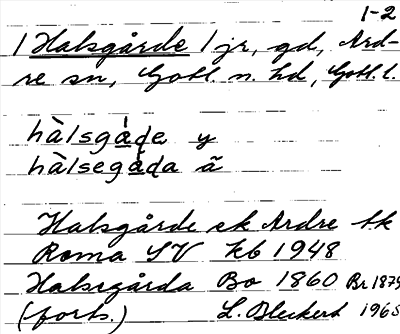 1-2
/Halsgårde/ jr, gd, Ard-
re sn, Gotl. n. hd, Gotl. l.
hàlsgå̀ɖe y
hàlsegå̀ɖa ã
Halsgårde ek Ardre tk
Roma SV kb 1948
Halsegårda Bo 1860 Br 1879
(forts.) L. Bleckert 1965